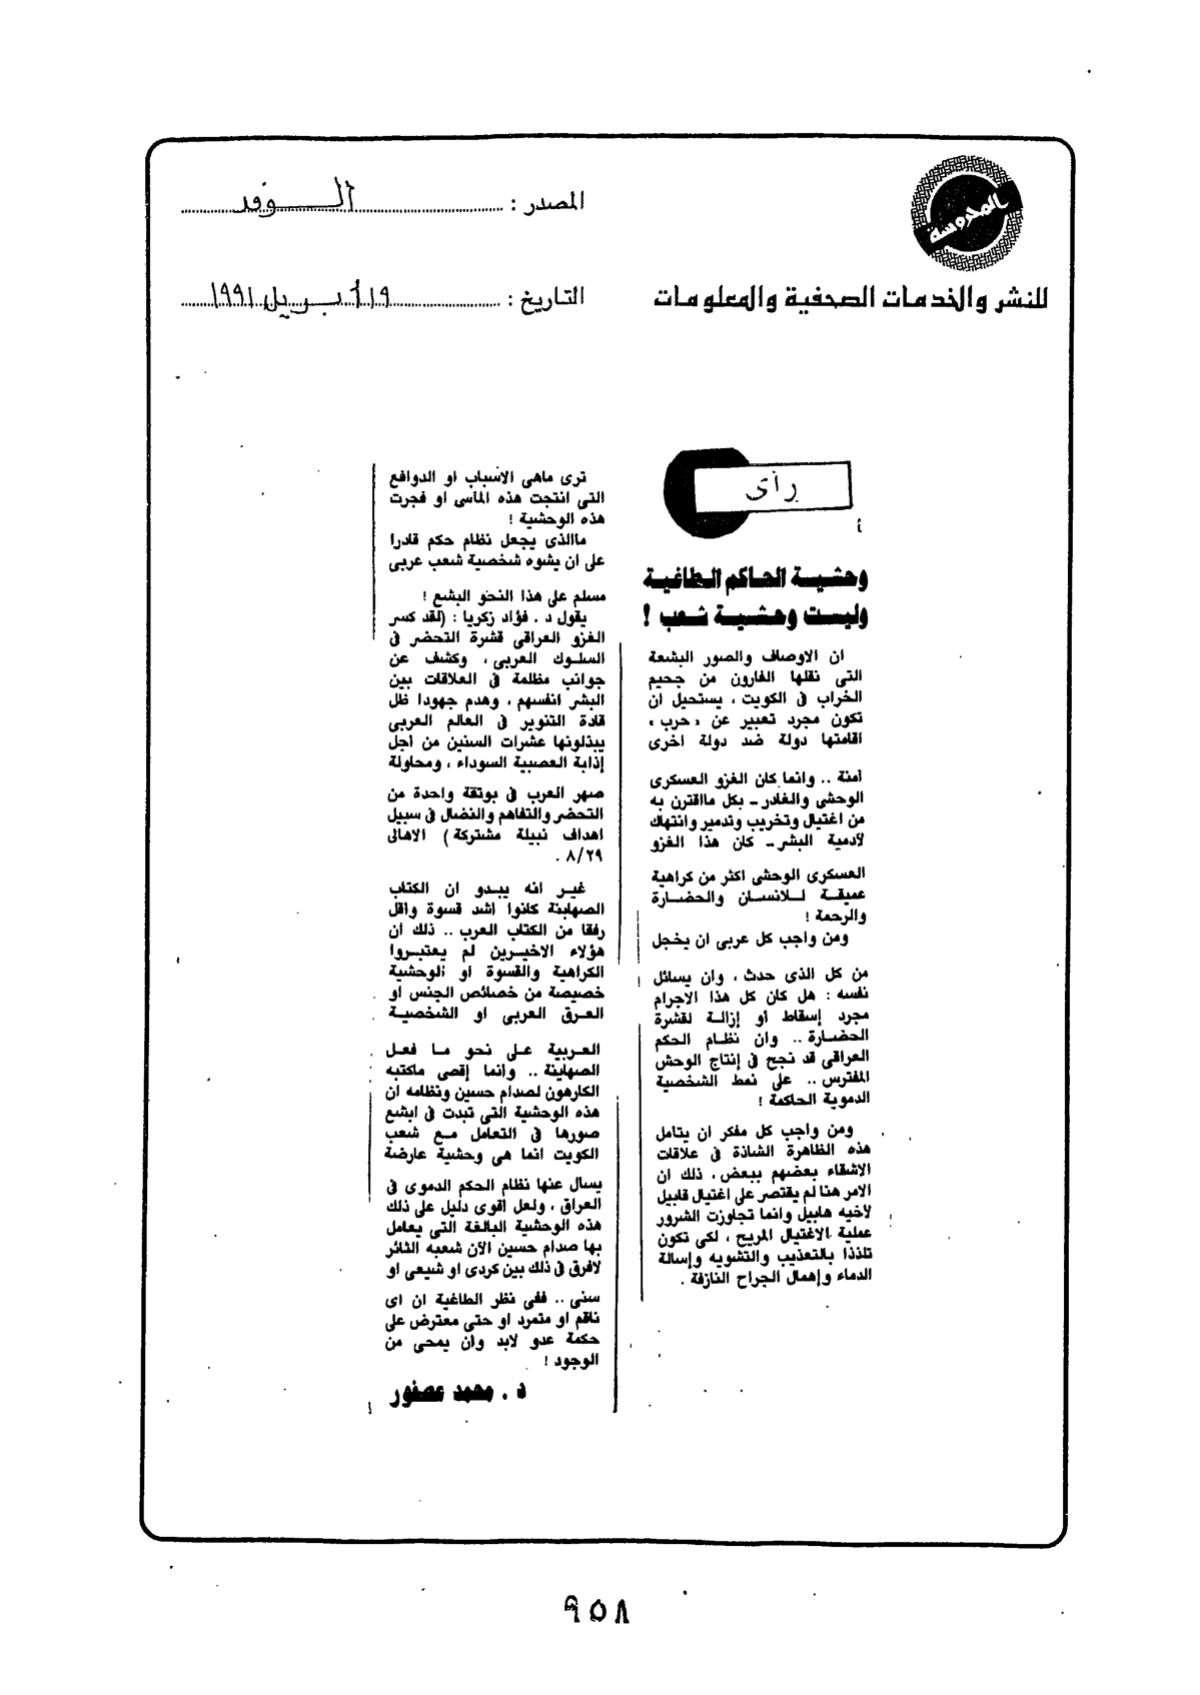 المحروسة
للنشر والخدمات الصحفية والمعلومات
المصدر : الوفد
التاريخ : ١٩ أبريل ١٩٩١
رأى
وحشية الحاكم الطاغية
وليست وحشية شعب !
ان الاوصاف والصور البشعة
التى نقلها الفارون من جحيم
الخراب فى الكويت ، يستحيل ان
تكون مجرد تعبير عن « حرب »
اقامتها دولة ضد دولة اخرى
آمنة .. وانما كان الغزو العسكرى
الوحشى والغادر - بكل مااقترن به
من اغتيال وتخريب وتدمير وانتهاك
لآدمية البشر - كان هذا الغزو
العسكرى الوحشى اكثر من كراهية
عميقة للانسان والحضارة
والرحمة !
ومن واجب كل عربى ان يخجل
من كل الذى حدث ، وان يسائل
نفسه : هل كان كل هذا الاجرام
مجرد إسقاط أو إزالة لقشرة
الحضارة .. وان نظام الحكم
العراقى قد نجح فى إنتاج الوحش
المفترس .. على نمط الشخصية
الدموية الحاكمة !
ومن واجب كل مفكر ان يتامل
هذه الظاهرة الشاذة فى علاقات
الاشقاء بعضهم ببعض ، ذلك ان
الامر هنا لم يقتصر على اغتيال قابيل
لاخيه هابيل وانما تجاوزت الشرور
عملية الاغتيال المريح ، لكى تكون
تلذذا بالتعذيب والتشويه وإسالة
الدماء وإهمال الجراح النازفة .
ترى ماهى الاسباب او الدوافع
التى انتجت هذه المآسى او فجرت
هذه الوحشية !
ماالذى يجعل نظام حكم قادرا
على ان يشوه شخصية شعب عربى
مسلم على هذا النحو البشع !
يقول د . فؤاد زكريا : (لقد كسر
الغزو العراقى قشرة التحضر فى
السلوك العربى ، وكشف عن
جوانب مظلمة فى العلاقات بين
البشر انفسهم ، وهدم جهودا ظل
قادة التنوير فى العالم العربى
يبذلونها عشرات السنين من اجل
إذابة العصبية السوداء ، ومحاولة
صهر العرب فى بوتقة واحدة من
التحضر والتفاهم والنضال فى سبيل
اهداف نبيلة مشتركة ) الاهالى
٨/٢٩ .
غير انه يبدو ان الكتاب
الصهاينة كانوا اشد قسوة واقل
رفقا من الكتاب العرب .. ذلك ان
هؤلاء الاخيرين لم يعتبروا
الكراهية والقسوة او الوحشية
خصيصة من خصائص الجنس او
العرق العربى او الشخصية
العربية على نحو ما فعل
الصهاينة .. وانما إقصى ماكتبه
الكارهون لصدام حسين ونظامه ان
هذه الوحشية التى تبدت فى ابشع
صورها فى التعامل مع شعب
الكويت انما هى وحشية عارضة
يسال عنها نظام الحكم الدموى فى
العراق ، ولعل أقوى دليل على ذلك
هذه الوحشية البالغة التى يعامل
بها صدام حسين الآن شعبه الثائر
لافرق فى ذلك بين كردى او شيعى او
سنى .. ففى نظر الطاغية ان اى
ناقم او متمرد او حتى معترض على
حكمة عدو لابد وان يمحى من
الوجود !
د . محمد عصفور
٩٥٨